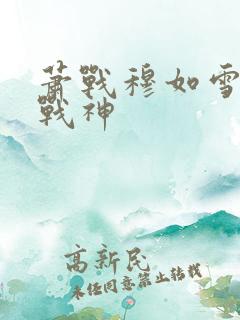 萧戰穆如雪
戰神
高新民
未经同意禁止转载